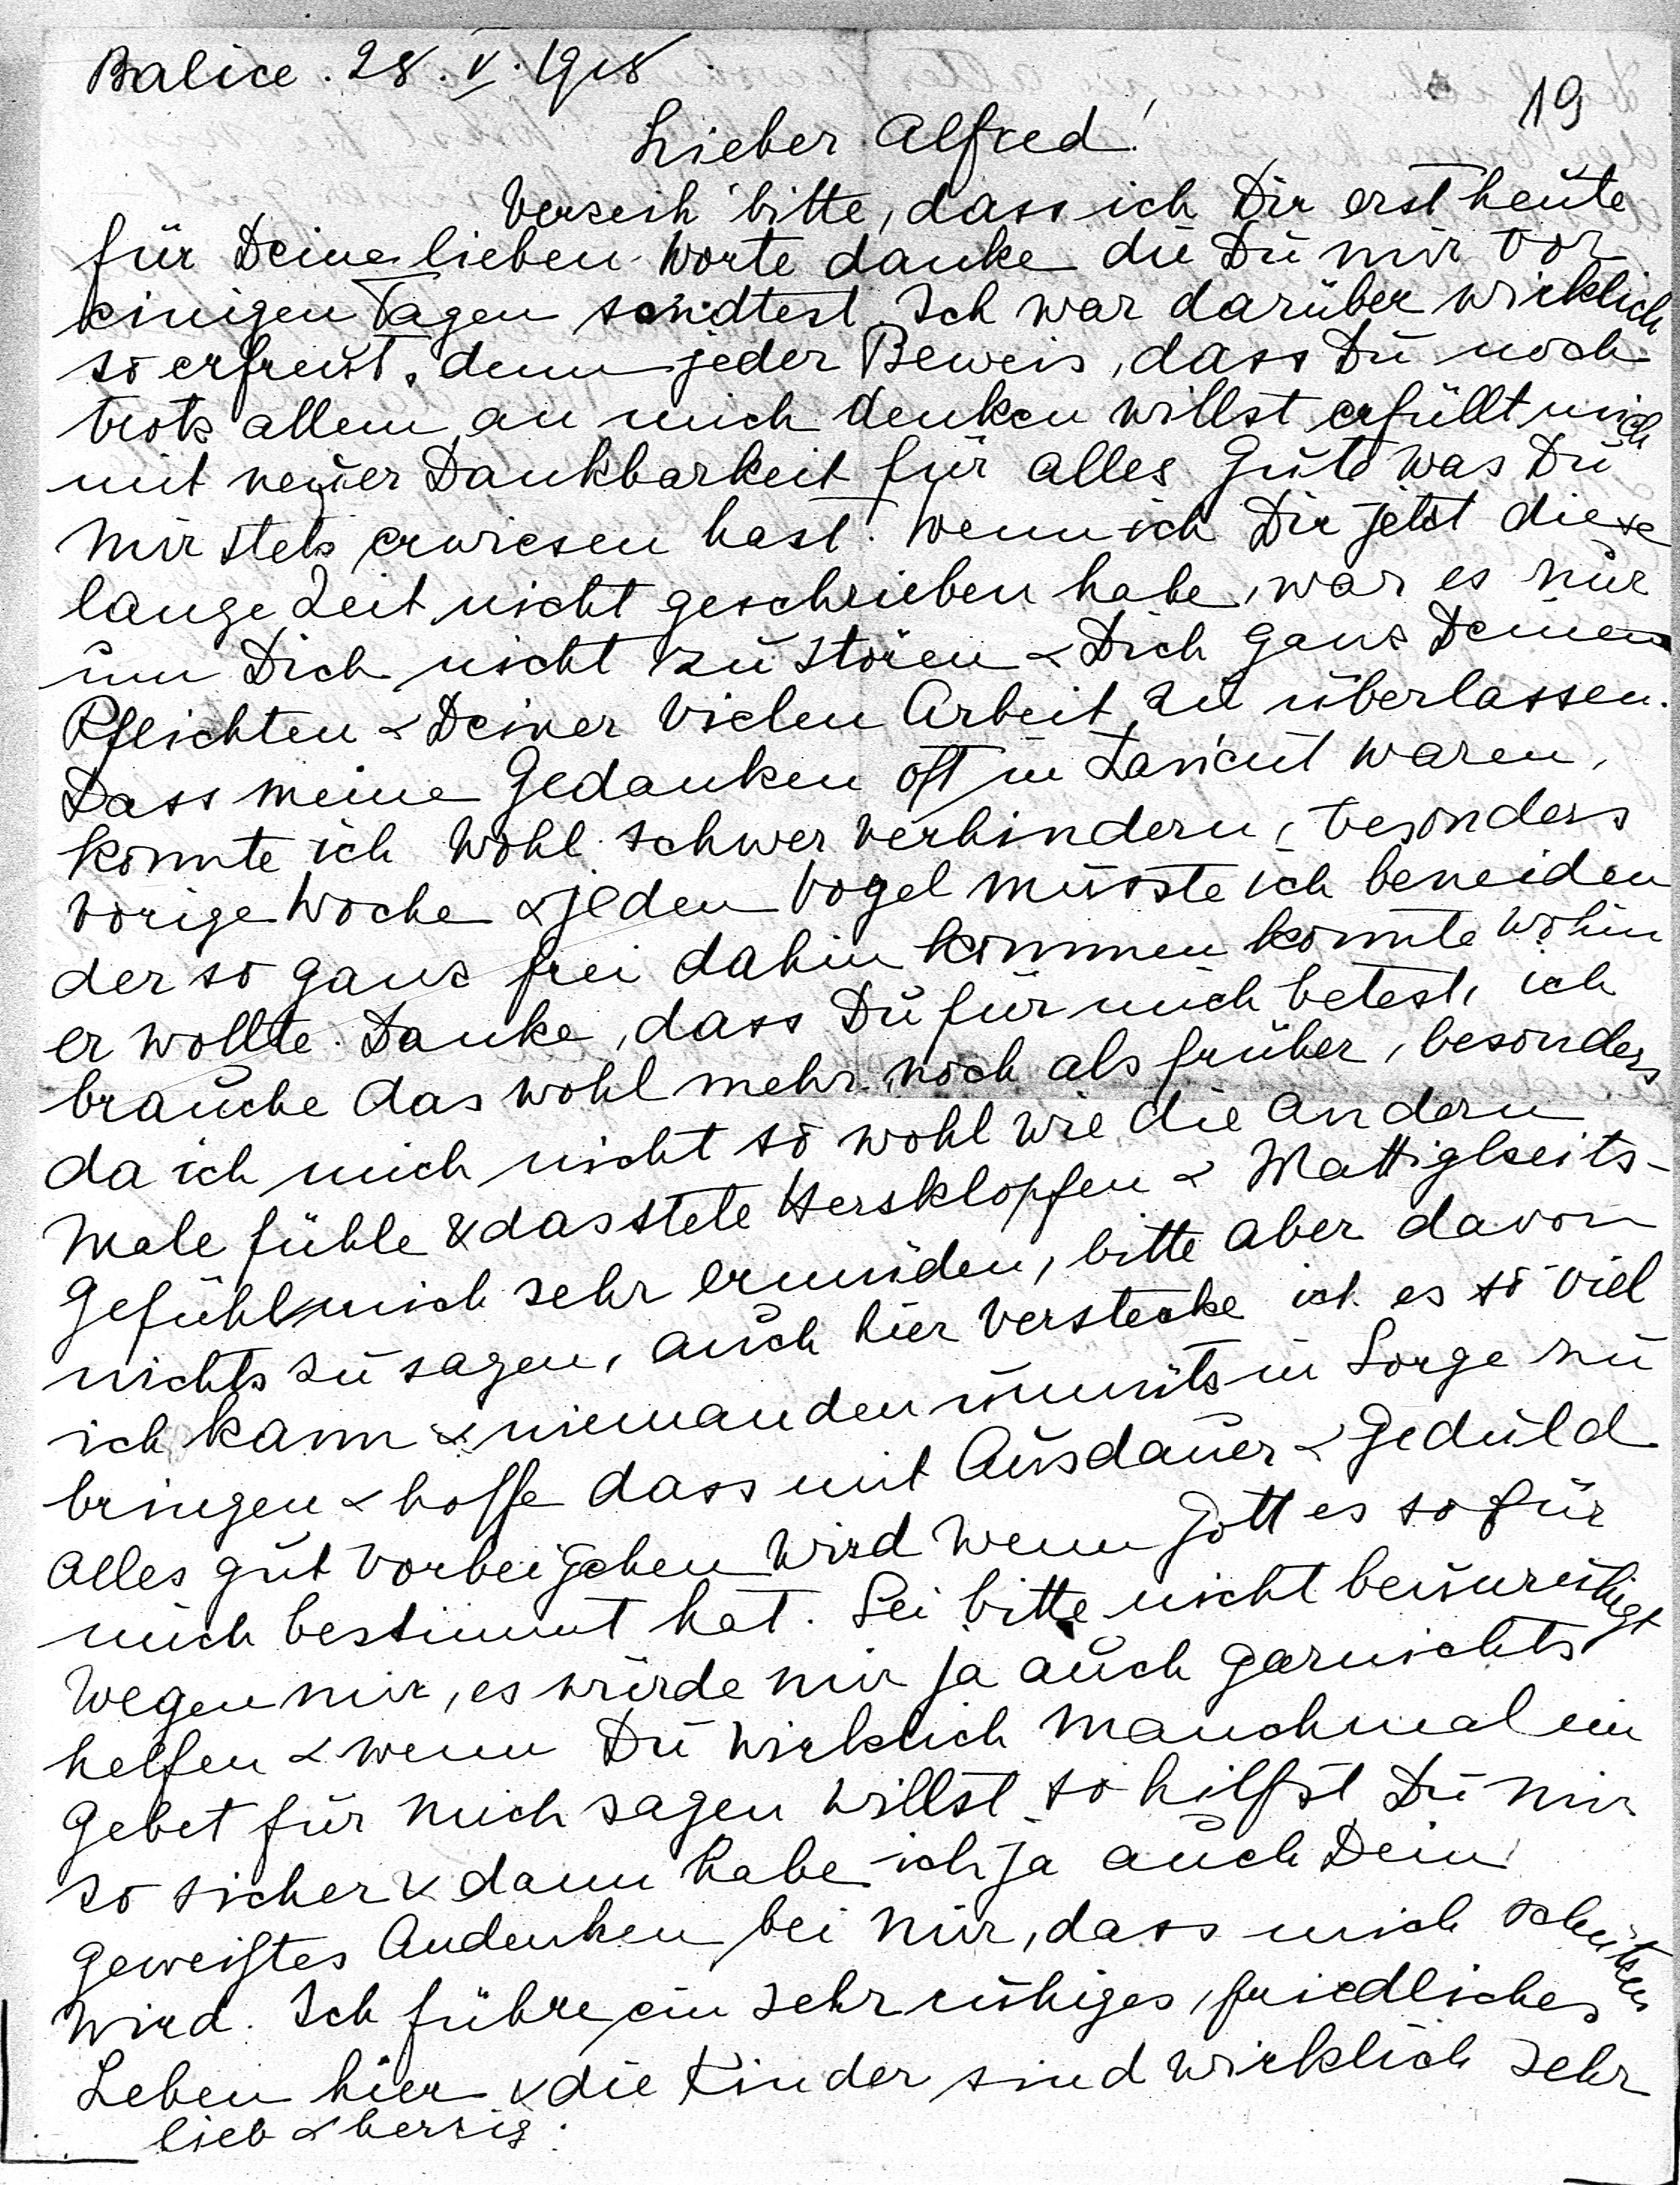 Balice. 28. V. 1918.
19
Lieber Alfred!
Verzeih' bitte, dass ich Dir erst heute
für Deine lieben Worte danke die Du mir vor
einigen Tagen sandtest. Ich war darüber wirklich
so erfreut, denn jeder Beweis, dass Du noch
trotz allem an mich denken willst erfüllt mich
mit neuer Dankbarkeit für alles Gute was Du
mir stets erwiesen hast. Wenn ich Dir jetzt diese
lange Zeit nicht geschrieben habe, war es nur
um Dich nicht zu stören & Dich ganz Deinen
Pflichten & Deiner vielen Arbeit zu überlassen.
Dass meine Gedanken oft in Łańcut waren,
konnte ich wohl schwer verhindern, besonders
vorige Woche & jeden Vogel müsste ich beneiden
der so ganz frei dahin kommen konnte wohin
er wollte. Danke, dass Du für mich betest, ich
brauche das wohl mehr noch als früher, besonders
da ich mich nicht so wohl wie die andern
Male fühle & das stete Herzklopfen & Mattigkeits-
gefühl mich sehr ermüden, bitte aber davon
nichts zu sagen, auch hier verstecke ich es so viel
ich kann & niemanden unnütz in Sorge zu
bringen & hoffe dass mit Ausdauer & Geduld
alles gut vorbeigehen wird wenn Gott es so für
mich bestimmt hat. Sei bitte nicht beunruhigt
wegen mir, es würde mir ja auch garnichts
helfen & wenn Du wirklich manchmal ein
Gebet für mich sagen willst so hilfst Du mir
so sicher & dann habe ich ja auch Dein
geweihtes Andenken bei mir, dass mich schützen
wird. Ich führe ein sehr ruhiges, friedliches
Leben hier & die Kinder sind wirklich sehr
lieb & herzig.